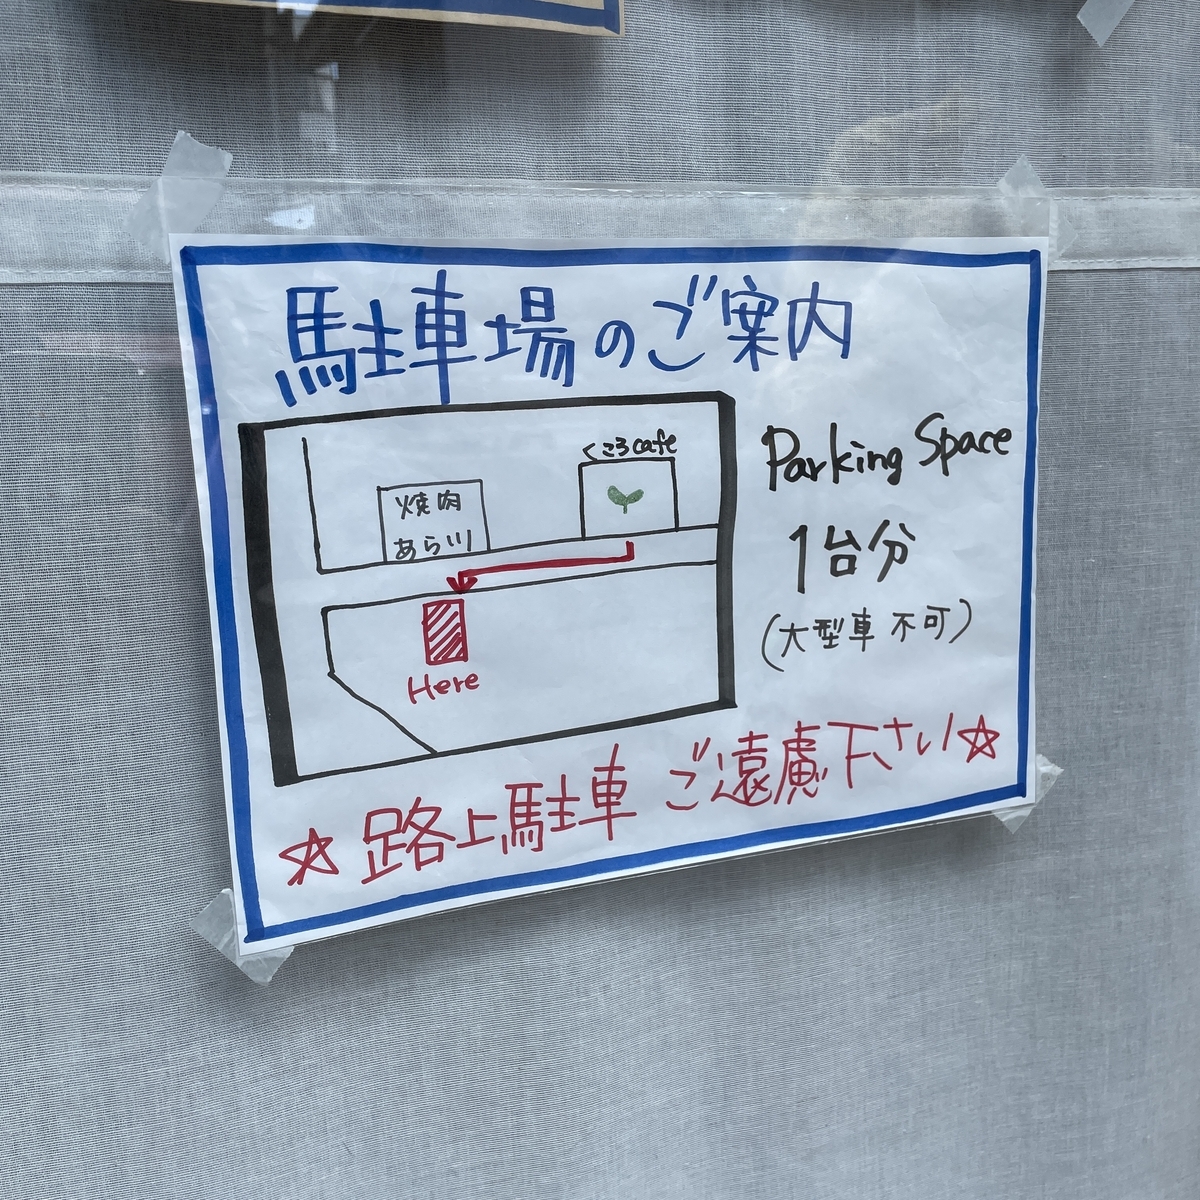 駐車場のご案内
くころcafe
焼肉
あら川
Here
Parking Space
1台分
(大型車 不可)
☆ 路上駐車 ご遠慮下さい☆